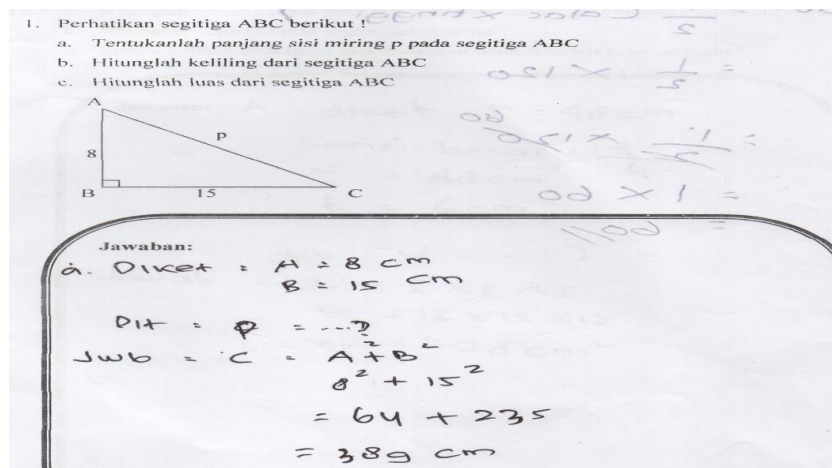 1. Perhatikan segitiga ABC berikut !
a. Tentukanlah panjang sisi miring p pada segitiga ABC
b. Hitunglah keliling dari segitiga ABC
c. Hitunglah luas dari segitiga ABC
A
p
8
B
15
C
Jawaban:
a. Diket = A = 8 cm
B = 15 cm
Dit = p = ...?
Jwb = C = A² + B²
8² + 15²
= 64 + 235
= 389 cm